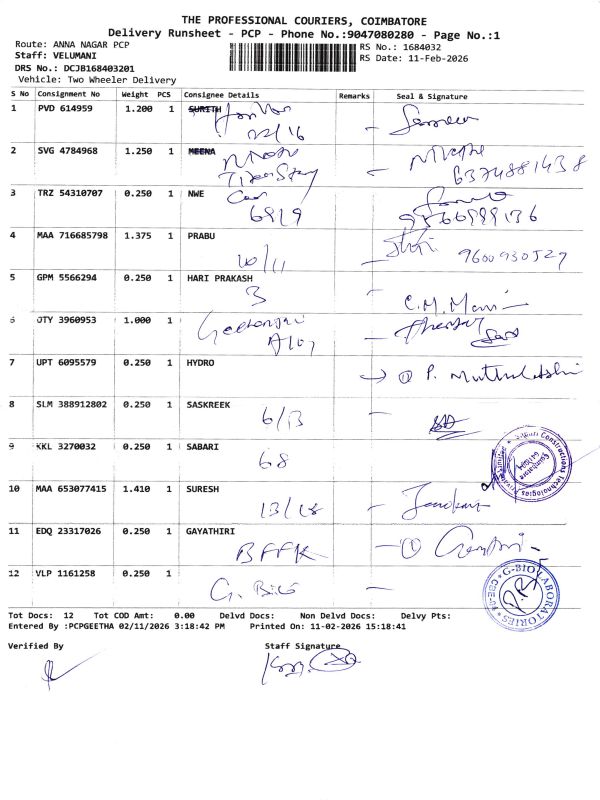 THE PROFESSIONAL COURIERS, COIMBATORE
Delivery Runsheet - PCP - Phone No.:9047080280 - Page No.:1
Route: ANNA NAGAR PCP
RS No.: 1684032
Staff: VELUMANI
RS Date: 11-Feb-2026
DRS No.: DCJB168403201
Vehicle: Two Wheeler Delivery
S No Consignment No Weight PCS Consignee Details Remarks Seal & Signature
1 PVD 614959 1.200 1 SURITH
22/16
2 SVG 4784968 1.250 1 MEENA
6374881438
3 TRZ 54310707 0.250 1 NWE
6919 9566999136
4 MAA 716685798 1.375 1 PRABU
10/11 9600930527
5 GPM 5566294 0.250 1 HARI PRAKASH
3 C.M. Mani
6 JTY 3960953 1.000 1 Geethanjali
A107
7 UPT 6095579 0.250 1 HYDRO
P. Muthulakshmi
8 SLM 388912802 0.250 1 SASKREEK
6/13
9 KKL 3270032 0.250 1 SABARI
68
10 MAA 653077415 1.410 1 SURESH
13/18
11 EDQ 23317026 0.250 1 GAYATHIRI
BFFK
12 VLP 1161258 0.250 1
G. BIO
G-BIO LABORATORIES
Tot Docs: 12 Tot COD Amt: 0.00 Delvd Docs: Non Delvd Docs: Delvy Pts:
Entered By :PCPGEETHA 02/11/2026 3:18:42 PM Printed On: 11-02-2026 15:18:41
Verified By Staff Signature